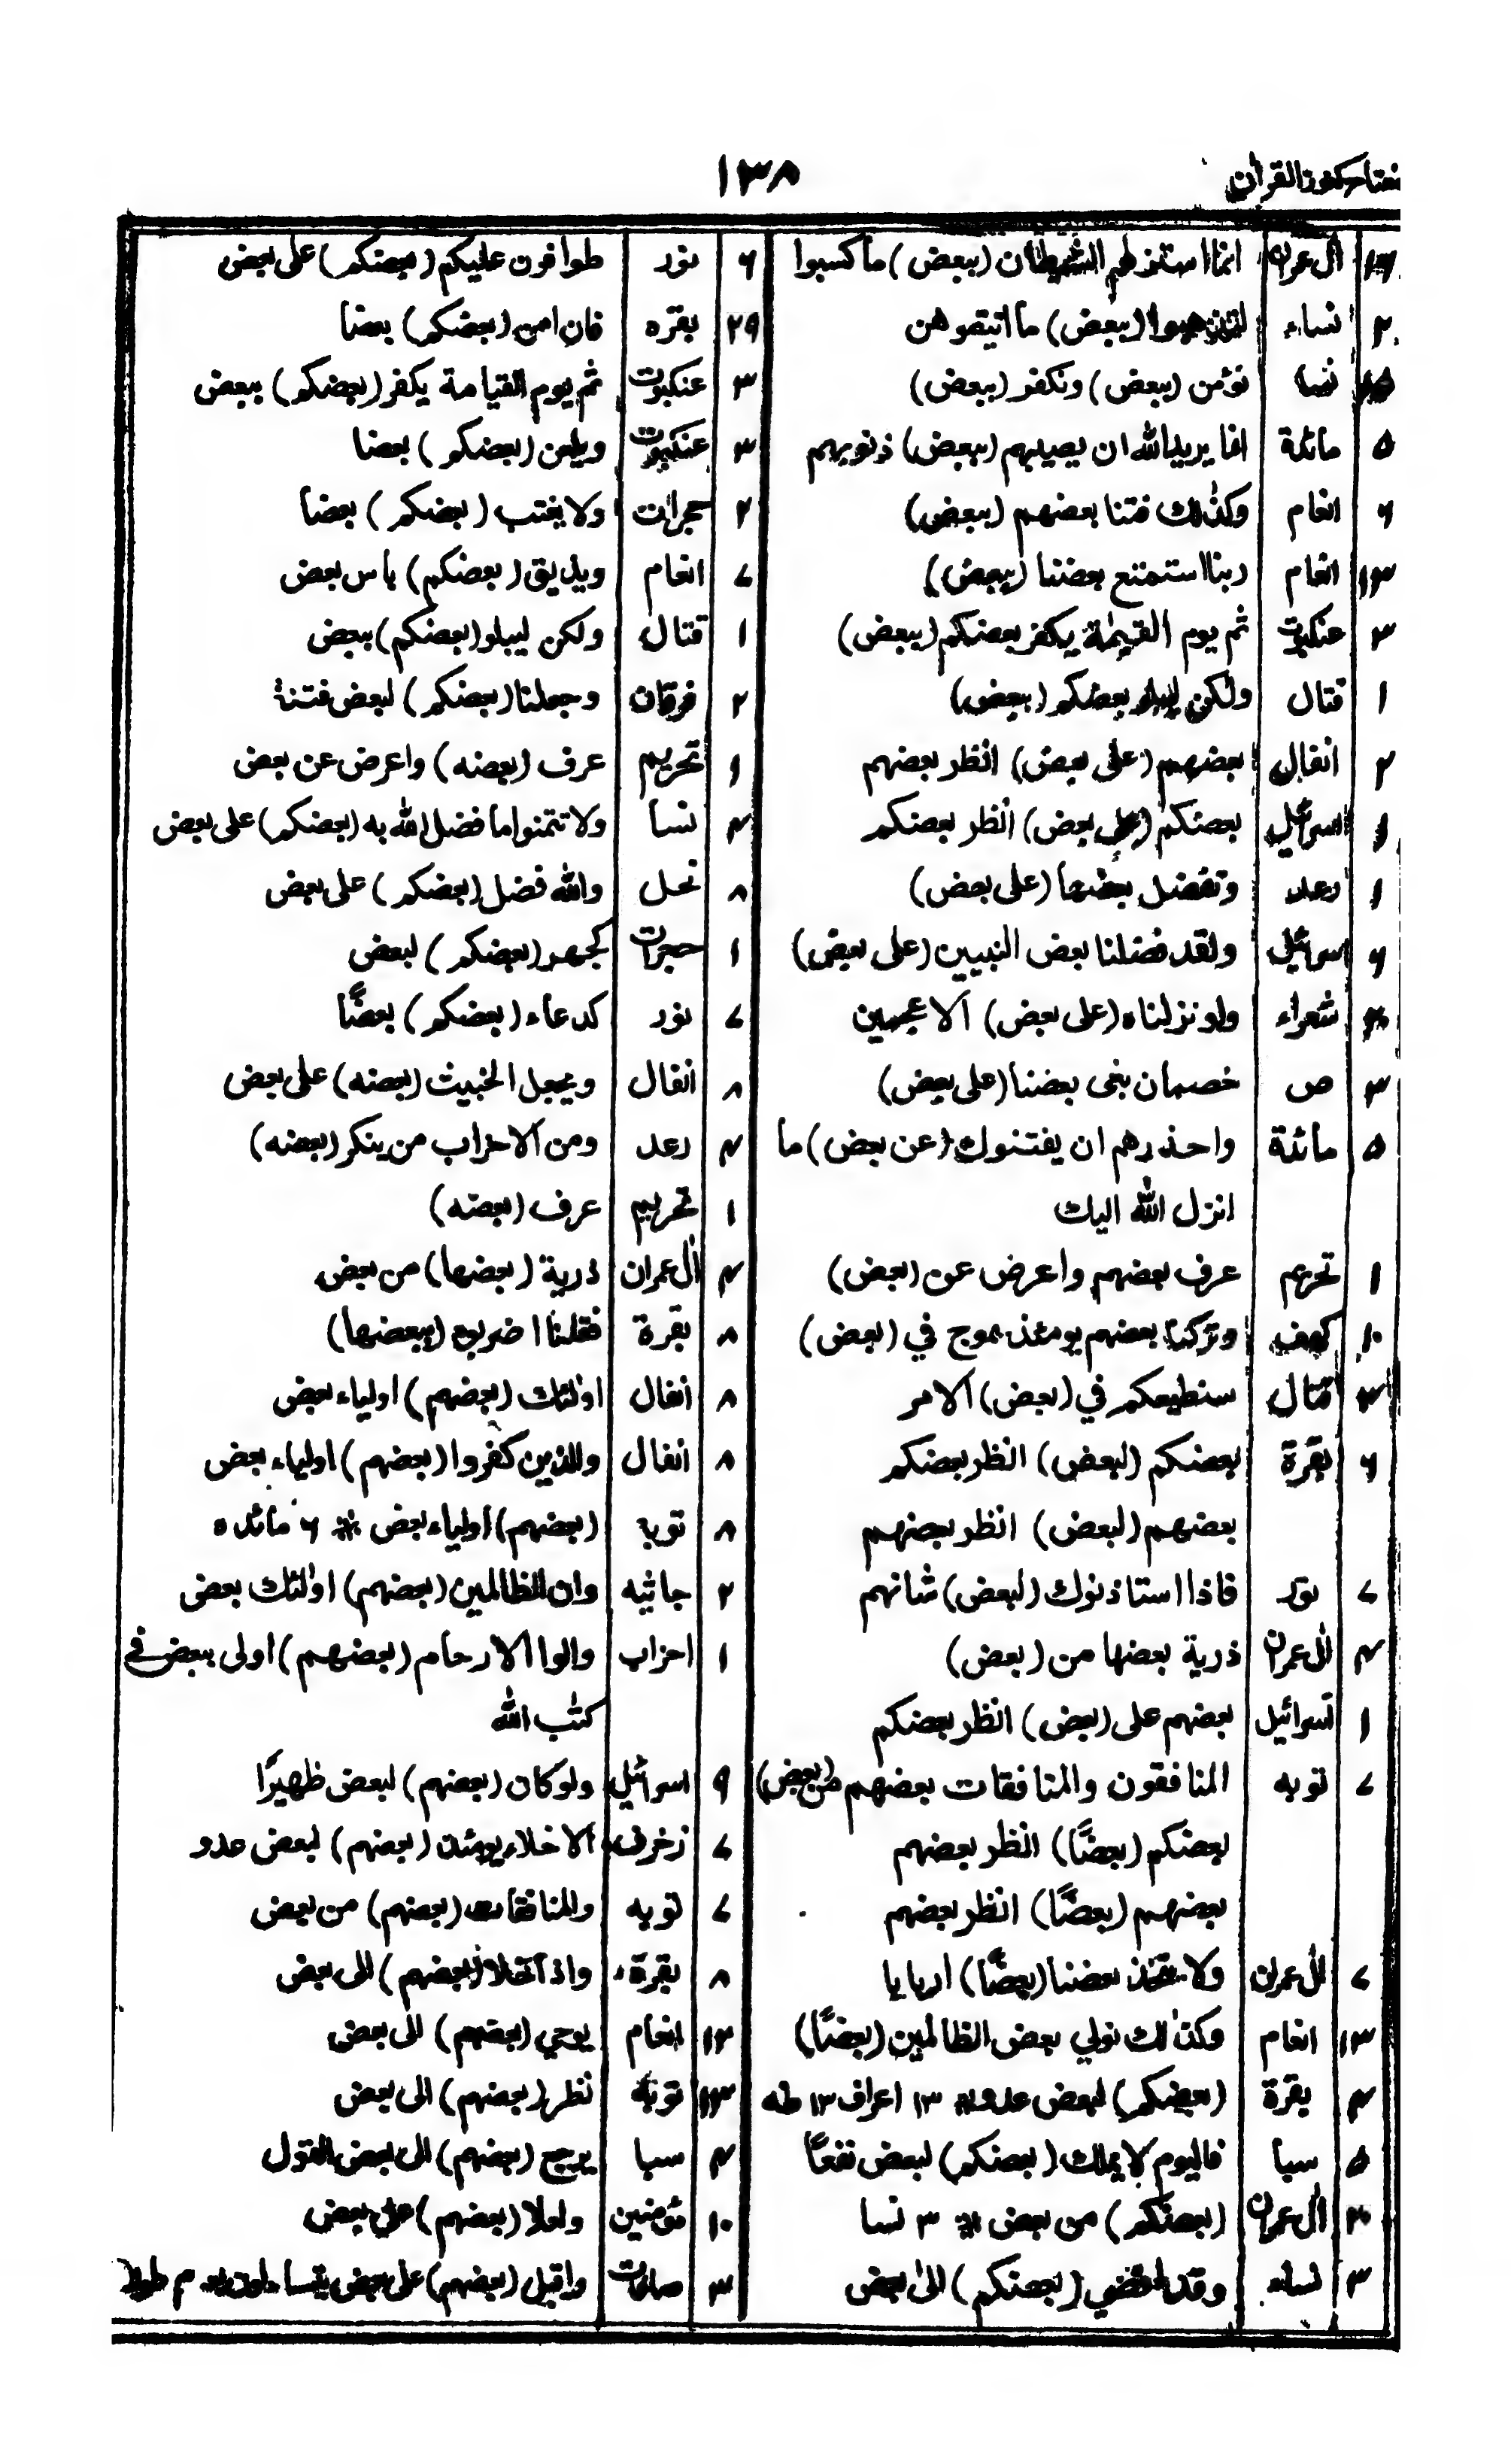 مفتاح كنوز القرآن
١٣٨
آل عمران انما استزلهم الشيطان (ببعض) ما كسبوا
٢ نساء لتذهبوا (ببعض) ما اتيتموهن
نسا نؤمن (ببعض) ونكفر (ببعض)
٥ مائدة انما يريد الله ان يصيبهم (ببعض) ذنوبهم
٦ انعام وكذٰلك فتنا بعضهم (ببعض)
١٣ انعام ربنا استمتع بعضنا (ببعض)
٣ عنكبوت ثم يوم القيٰمة يكفر بعضكم (ببعض)
١ قتال ولكن ليبلو بعضكم (ببعض)
٢ انفال بعضهم (على بعض) انظر بعضهم
اسرائيل بعضكم (على بعض) انظر بعضكم
١ رعد وتفضل بعضها (على بعض)
٦ اسرائيل ولقد فضلنا بعض النبيين (على بعض)
شعراء ولو نزلناه (على بعض) الاعجمين
٣ ص خصمان بغى بعضنا (على بعض)
٥ مائدة واحذرهم ان يفتنوك (عن بعض) ما
انزل الله اليك
١ تحريم عرف بعضهم واعرض عن (بعض)
١٠ كهف وتركنا بعضهم يومئذ يموج في (بعض)
٣ قتال سنطيعكم في (بعض) الامر
٦ بقرة بعضكم (لبعض) انظر بعضكم
بعضهم (لبعض) انظر بعضهم
٧ نور فاذا استاذنوك (لبعض) شانهم
٤ آل عمران ذرية بعضها من (بعض)
١ اسرائيل بعضهم على (بعض) انظر بعضكم
٧ توبه المنافقون والمنافقات بعضهم من (بعض)
بعضكم (بعضًا) انظر بعضهم
بعضهم (بعضًا) انظر بعضهم
٧ آل عمران ولا يتخذ بعضنا (بعضًا) اربابا
١٣ انعام وكذٰلك نولي بعض الظالمين (بعضًا)
٤ بقرة (بعضكم) لبعض عدو ؞ ١٣ اعراف ١٣ طه
٥ سبأ فاليوم لا يملك (بعضكم) لبعض نفعًا
٢٠ آل عمران (بعضكم) من بعض ؞ ٣ نسا
٣ نساء وقد افضي (بعضكم) الى بعض
٦ نور طوافون عليكم (بعضكم) على بعض
٢٩ بقره فان امن (بعضكم) بعضا
٣ عنكبوت ثم يوم القيامة يكفر (بعضكم) ببعض
٣ عنكبوت ويلعن (بعضكم) بعضا
٢ حجرات ولا يغتب (بعضكم) بعضا
٧ انعام ويذيق (بعضكم) باس بعض
١ قتال ولكن ليبلو (بعضكم) ببعض
٢ فرقان وجعلنا (بعضكم) لبعض فتنة
١ تحريم عرف (بعضه) واعرض عن بعض
٤ نسا ولا تتمنوا ما فضل الله به (بعضكم) على بعض
٨ نحل والله فضل (بعضكم) على بعض
١ حجرات كجهر (بعضكم) لبعض
٧ نور كدعاء (بعضكم) بعضًا
٨ انفال ويجعل الخبيث (بعضه) على بعض
٤ رعد ومن الاحزاب من ينكر (بعضه)
١ تحريم عرف (بعضه)
٤ آل عمران ذرية (بعضها) من بعض
٨ بقرة فقلنا اضربوه (ببعضها)
٨ انفال اولٰئك (بعضهم) اولياء بعض
٨ انفال والذين كفروا (بعضهم) اولياء بعض
٨ توبة (بعضهم) اولياء بعض ؞ ٦ مائده
٢ جاثيه وان الظالمين (بعضهم) اولئك بعض
١ احزاب والوا الارحام (بعضهم) اولى ببعض في
كتٰب الله
٩ اسرائيل ولو كان (بعضهم) لبعض ظهيرًا
٧ زخرف الاخلاء يومئذ (بعضهم) لبعض عدو
٧ توبه والمنافقات (بعضهم) من بعض
٨ بقرة واذا خلا (بعضهم) الى بعض
١٣ انعام يوحي (بعضهم) الى بعض
١٣ توبة نظر (بعضهم) الى بعض
٤ سبا يرجع (بعضهم) الى بعض القول
١٠ مؤمنين ولعلا (بعضهم) على بعض
٣ صافات واقبل (بعضهم) على بعض يتساءلون